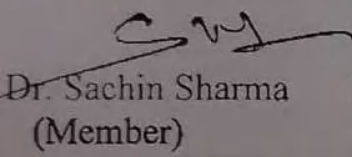 Dr. Sachin Sharma
(Member)